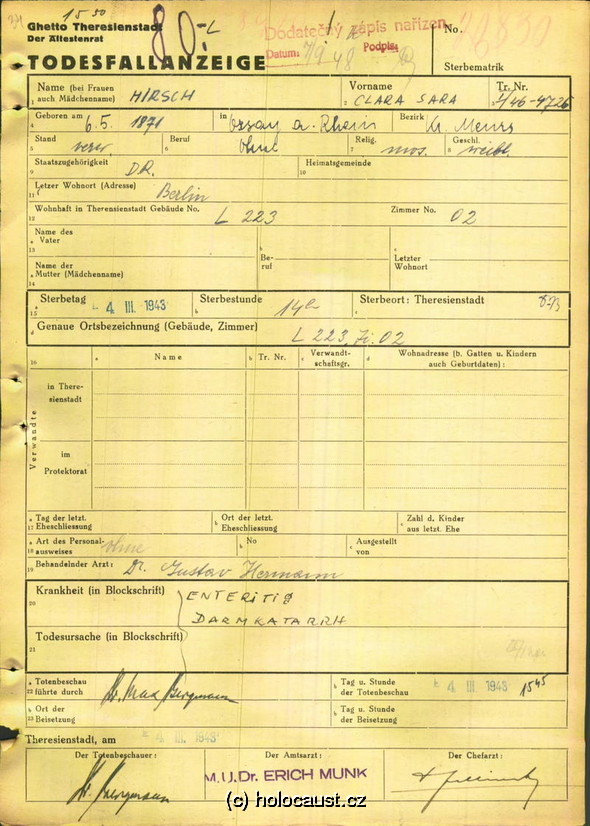 15 50
Ghetto Theresienstadt
Der Ältestenrat
80.-
Dodatečný zápis nařízen
Datum: 7/9 48 Podpis:
No.
TODESFALLANZEIGE
Sterbematrik
Name (bei Frauen auch Mädchenname) HIRSCH
Vorname CLARA SARA
Tr. Nr. I/46-4725
Geboren am 6.5. 1871
in Orsoy a. Rhein
Bezirk Kr. Meurs
Stand verw.
Beruf ohne
Relig. mos.
Geschl. weibl.
Staatszugehörigkeit D.R.
Heimatsgemeinde
Letzer Wohnort (Adresse) Berlin
Wohnhaft in Theresienstadt Gebäude No. L 223
Zimmer No. 02
Name des Vater
Beruf
Letzter Wohnort
Name der Mutter (Mädchenname)
Sterbetag 4 III. 1943
Sterbestunde 14h
Sterbeort: Theresienstadt
Genaue Ortsbezeichnung (Gebäude, Zimmer)
L 223, Zi. 02
Name
Tr. Nr.
Verwandtscheftsgr.
Wohnadresse (b. Gatten u. Kindern auch Geburtdaten):
Verwandte
in Theresienstadt
im Protektorat
Tag der letzt. Eheschliessung
Ort der letzt. Eheschliessung
Zahl d. Kinder aus letzt. Ehe
Art des Personalausweises ohne
No
Ausgestellt von
Behandelnder Arzt: Dr. Gustav Hermann
Krankheit (in Blockschrift) ENTERITIS
DARMKATARRH
Todesursache (in Blockschrift)
Totenbeschau führte durch Dr. Max Bergmann
Tag u. Stunde der Totenbeschau 4 III. 1943 15 45
Ort der Beisetzung
Tag u. Stunde der Beisetzung
Theresienstadt, am 4 III. 1943
Der Totenbeschauer:
Der Amtsarzt:
Der Chefarzt:
Dr. Bergmann
M.U.Dr. ERICH MUNK
(c) holocaust.cz